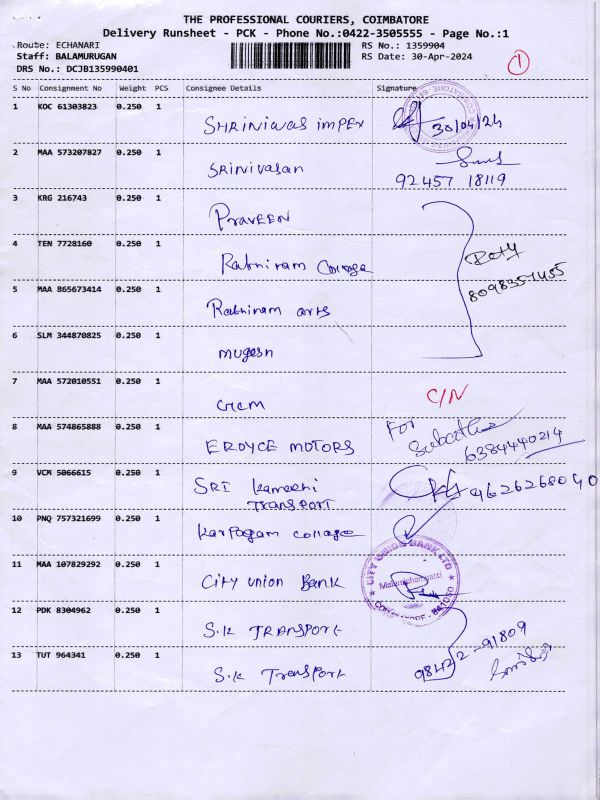 THE PROFESSIONAL COURIERS, COIMBATORE
Delivery Runsheet - PCK - Phone No.:0422-3505555 - Page No.:1
Route: ECHANARI RS No.: 1359904
Staff: BALAMURUGAN RS Date: 30-Apr-2024
DRS No.: DCJB135990401
1
S No Consignment No Weight PCS Consignee Details Signature
1 KOC 61303823 0.250 1 SHRINIWAS IMPEX 30/04/24
2 MAA 573207827 0.250 1 SRINIVASAN
92457 18119
3 KRG 216743 0.250 1 PRAVEEN
4 TEN 7728160 0.250 1 Ratniram College
5 MAA 865673414 0.250 1 Ratniram arts
8098357455
6 SLM 344870825 0.250 1 mugesh
7 MAA 572010551 0.250 1 C/N
8 MAA 574865888 0.250 1 EROYCE MOTORS For
6384440214
9 VCM 5066615 0.250 1 SRI kamachi TRANSPORT 9626268040
10 PNQ 757321699 0.250 1 Karpagam collage
11 MAA 107829292 0.250 1 City union Bank CITY UNION BANK LTD
Malumichampatti
COIMBATORE - 641050
12 PDK 8304962 0.250 1 S.K TRANSPORT
13 TUT 964341 0.250 1 S.K Transport 98422-91809